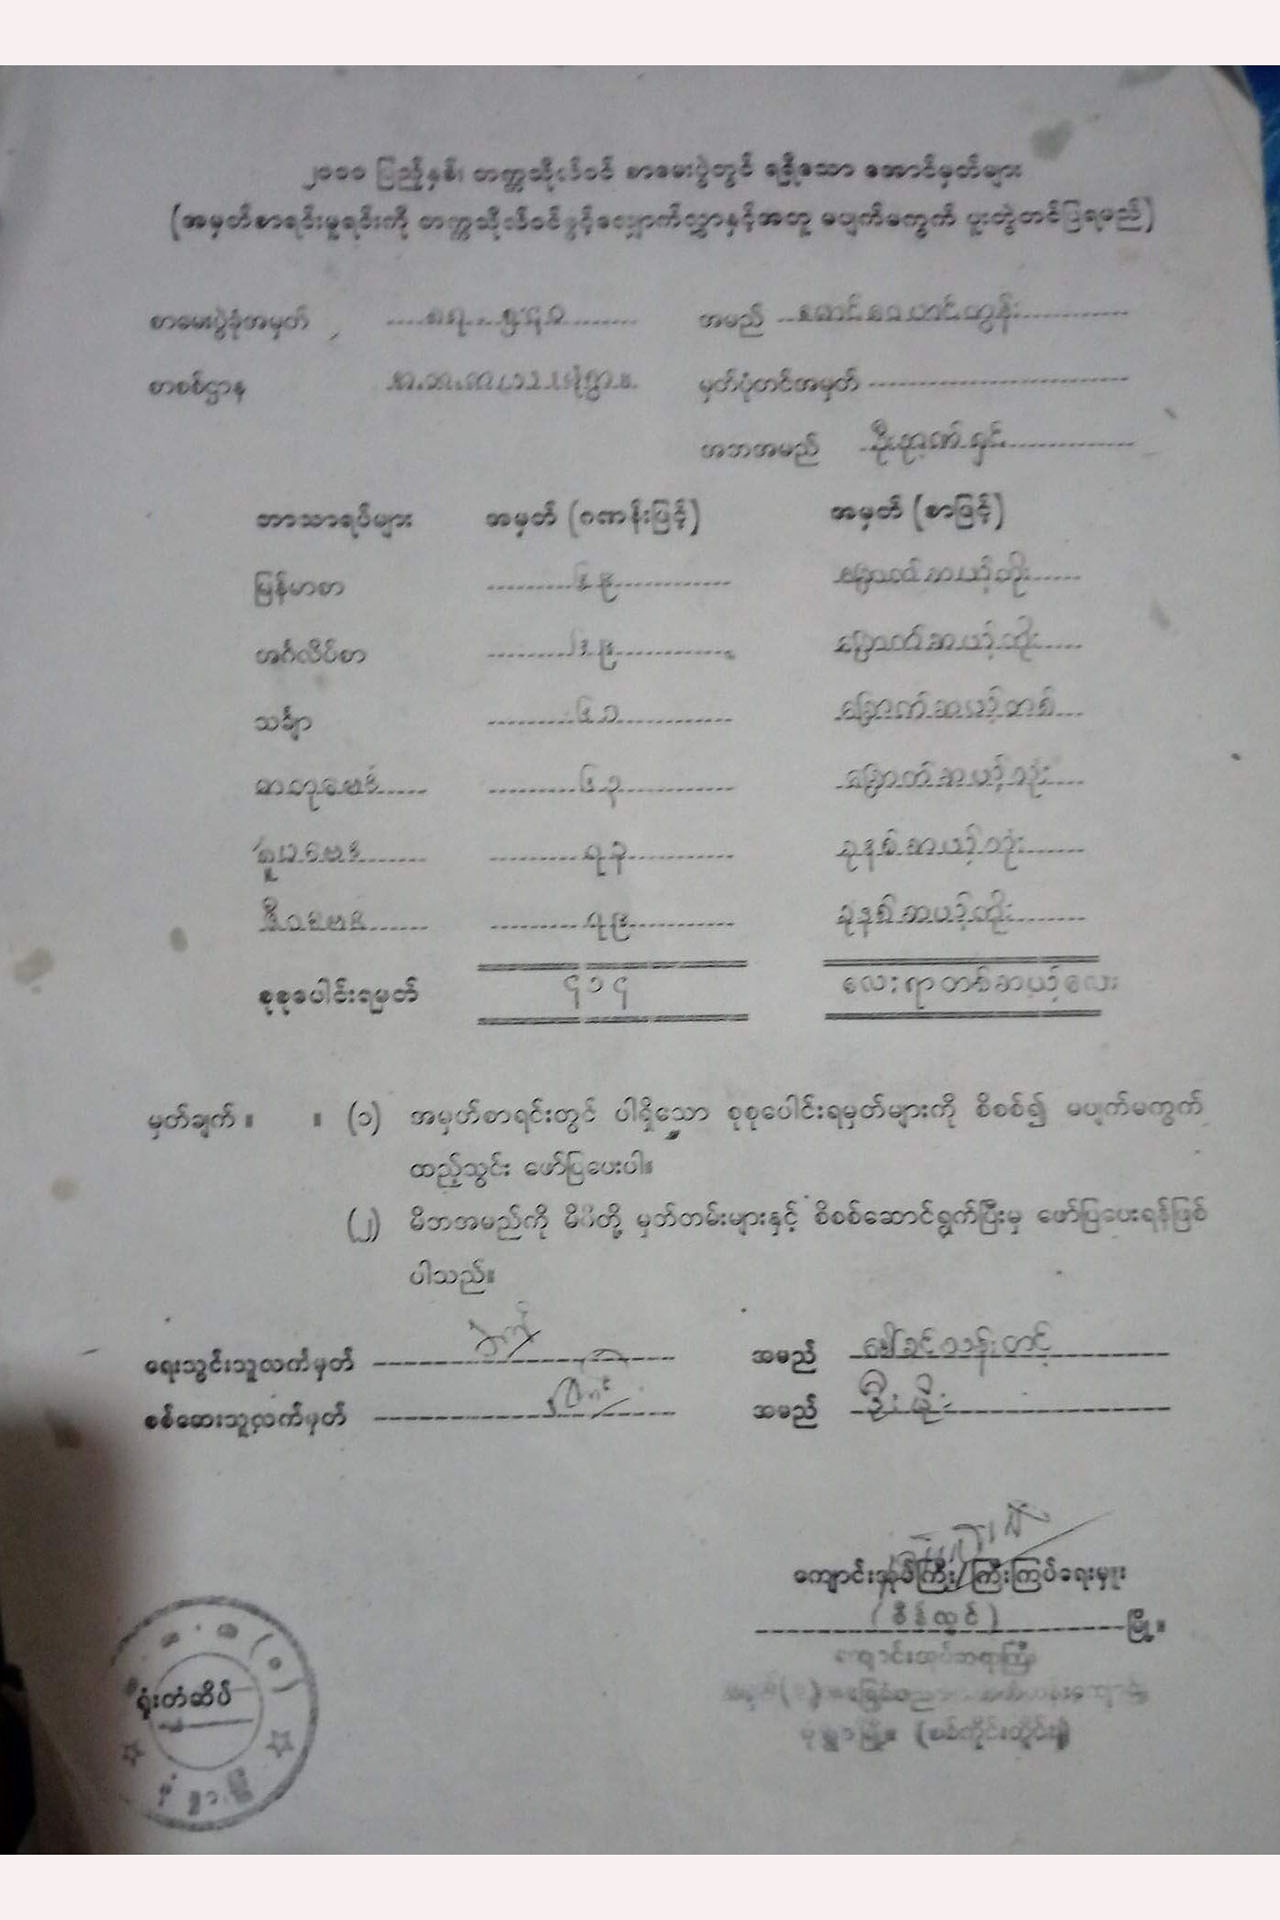 ၂၀၁၁ ပြည့်နှစ်၊ တက္ကသိုလ်ဝင် စာမေးပွဲတွင် ရရှိသော အောင်မှတ်များ
(အမှတ်စာရင်းမူရင်းကို တက္ကသိုလ်ဝင်ခွင့်လျှောက်လွှာနှင့်အတူ မပျက်မကွက် ပူးတွဲတင်ပြရမည်)
စာမေးပွဲခုံအမှတ် အမည်
စာစစ်ဌာန မှတ်ပုံတင်အမှတ်
အဘအမည်
ဘာသာရပ်များ အမှတ် (ဂဏန်းဖြင့်) အမှတ် (စာဖြင့်)
မြန်မာစာ ၆၉ ခြောက်ဆယ့်ကိုး
အင်္ဂလိပ်စာ ၆၉ ခြောက်ဆယ့်ကိုး
သင်္ချာ ၆၁ ခြောက်ဆယ့်တစ်
ဓာတုဗေဒ ၆၃ ခြောက်ဆယ့်သုံး
ရူပဗေဒ ၇၃ ခုနစ်ဆယ့်သုံး
ဇီဝဗေဒ ၇၉ ခုနစ်ဆယ့်ကိုး
စုစုပေါင်းရမှတ် ၄၁၄ လေးရာတစ်ဆယ့်လေး
မှတ်ချက် ။ ။ (၁) အမှတ်စာရင်းတွင် ပါရှိသော စုစုပေါင်းရမှတ်များကို စိစစ်၍ မပျက်မကွက်
ထည့်သွင်း ဖော်ပြပေးပါ။
(၂) မိဘအမည်ကို မိမိတို့ မှတ်တမ်းများနှင့် စိစစ်ဆောင်ရွက်ပြီးမှ ဖော်ပြပေးရန်ဖြစ်
ပါသည်။
ရေးသွင်းသူလက်မှတ် အမည် ဒေါ်ခင်သန်းတင့်
စစ်ဆေးသူလက်မှတ် အမည် ဦးမိုး
ကျောင်းအုပ်ကြီး/ကြီးကြပ်ရေးမှူး
(စိန်လွင်)
မြို့။
ကျောင်းအုပ်ဆရာကြီး
မုံရွာမြို့။ (စစ်ကိုင်းတိုင်း)
ရုံးတံဆိပ်